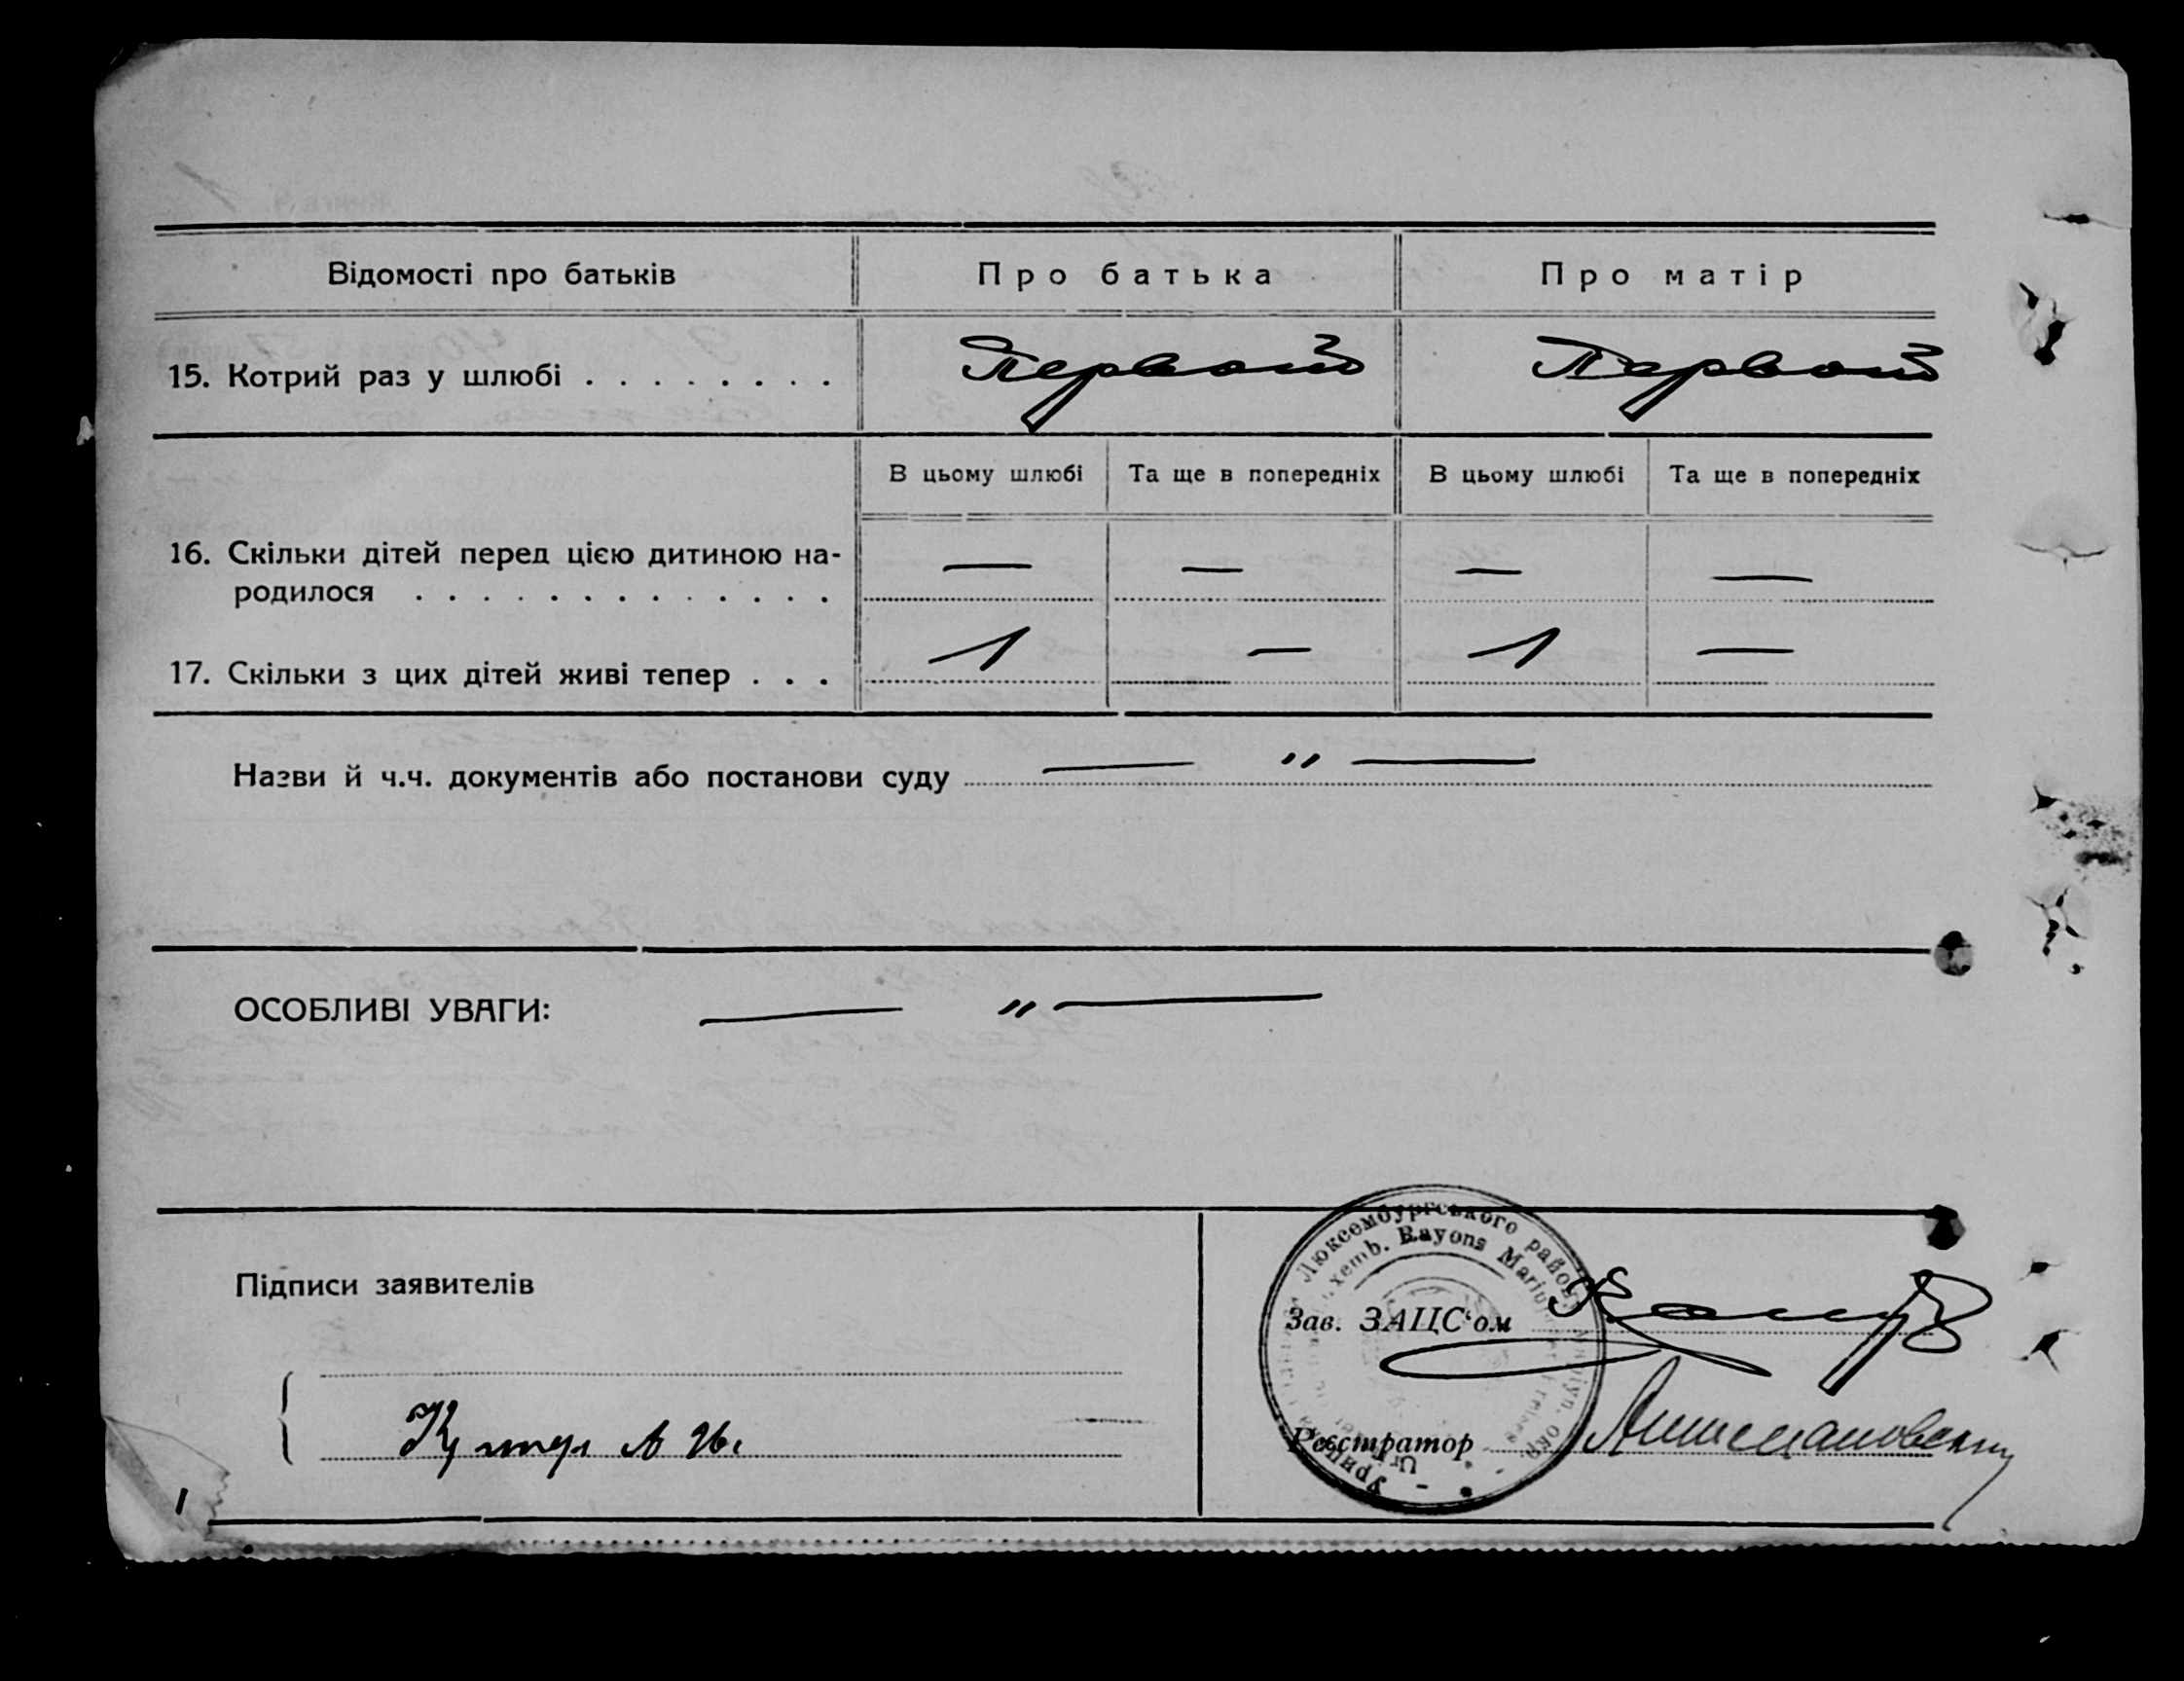 Відомості про батьків
Про батька
Про матір
15. Котрий раз у шлюбі . . . . . . . .
Первой
Первой
В цьому шлюбі
Та ще в попередніх
В цьому шлюбі
Та ще в попередніх
16. Скільки дітей перед цією дитиною на-
родилося . . . . . . . . . . . . .
— — — —
17. Скільки з цих дітей живі тепер . . .
1 — 1 —
Назви й ч.ч. документів або постанови суду — " —
ОСОБЛИВІ УВАГИ: — " —
Підписи заявителів
Люксембургського району
xemb. Rayons Mariu
Зав. ЗАЦС'ом
Реєстратор
1